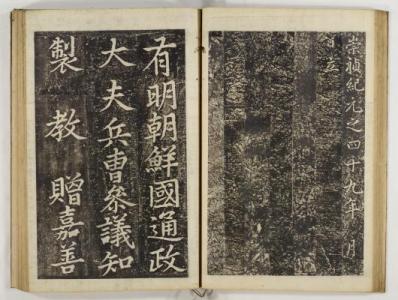 崇禎紀元之四十九年 月
日立
有明朝鮮國通政
大夫兵曹參議知
製教贈嘉善